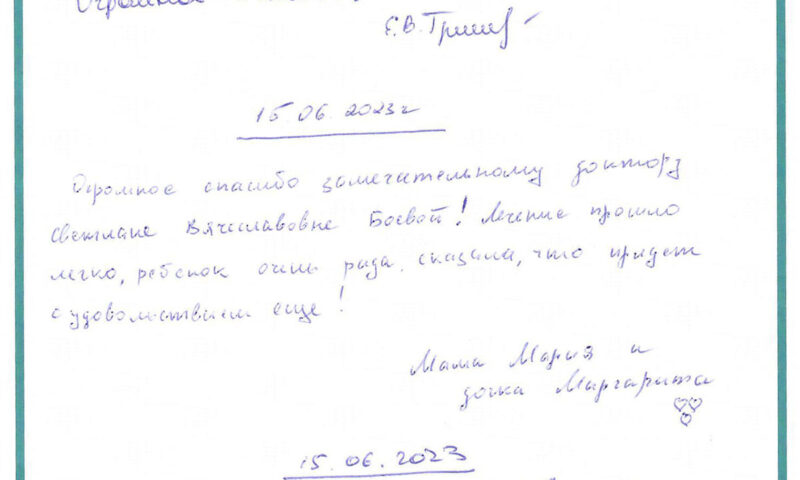 Огромное
Е.В. Гриш
15.06.2023г
Огромное спасибо замечательному доктору
Светлане Вячеславовне Боевой! Лечение прошло
легко, ребенок очень рада, сказала, что придет
с удовольствием еще!
Мама Мария и
дочка Маргарита
15.06.2023